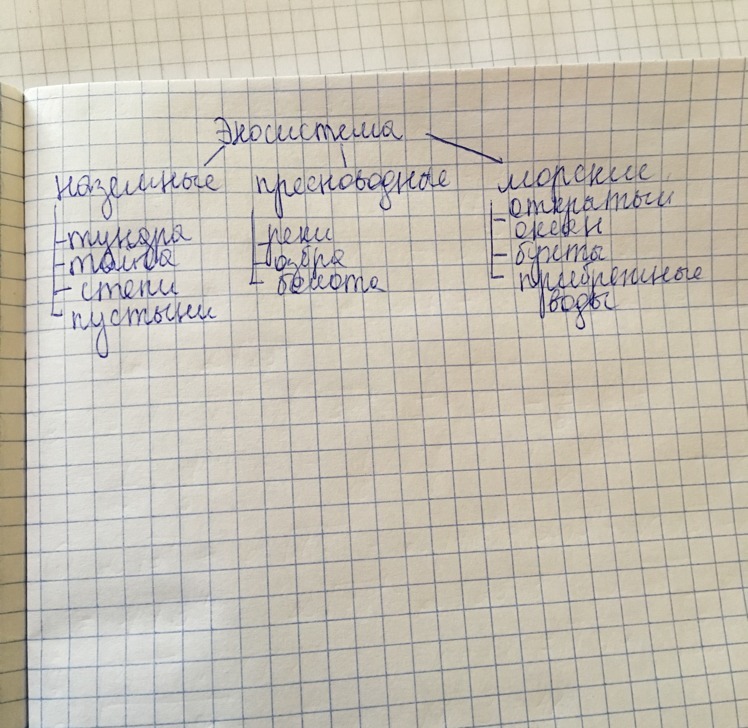 Экосистема
наземные
- тундра
- тайга
- степи
- пустыни
пресноводные
- реки
- озёра
- болота
морские
- открытый
океан
- бухты
- прибрежные
воды